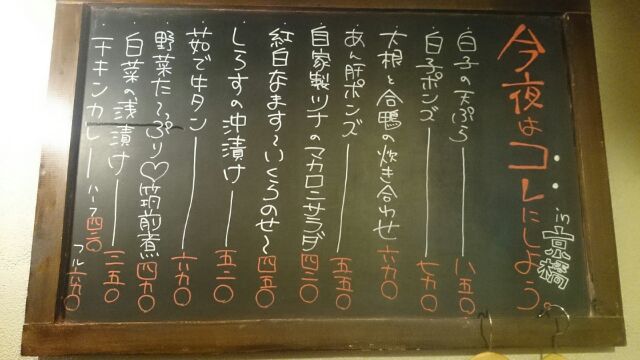 今夜はコレにしよう。
in 京橋
・白子の天ぷら 八五〇
・白子ポンズ 七九〇
・大根と合鴨の炊き合わせ 六九〇
・あん肝ポンズ 五五〇
・自家製ツナのマカロニサラダ 四二〇
・紅白なます〜いくらのせ〜 四五〇
・しらすの沖漬け 五二〇
・茹で牛タン 六九〇
・野菜た〜っぷり♡筑前煮 四九〇
・白菜の浅漬け 三五〇
・チキンカレー ハーフ 四二〇
フル 六九〇